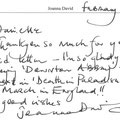 Joanna David
February
Thank you so much for your
kind letter - I'm so glad
enjoy 'Downton Abbey'
'Death in Paradise'
March in England!!
good wishes
Joanna David